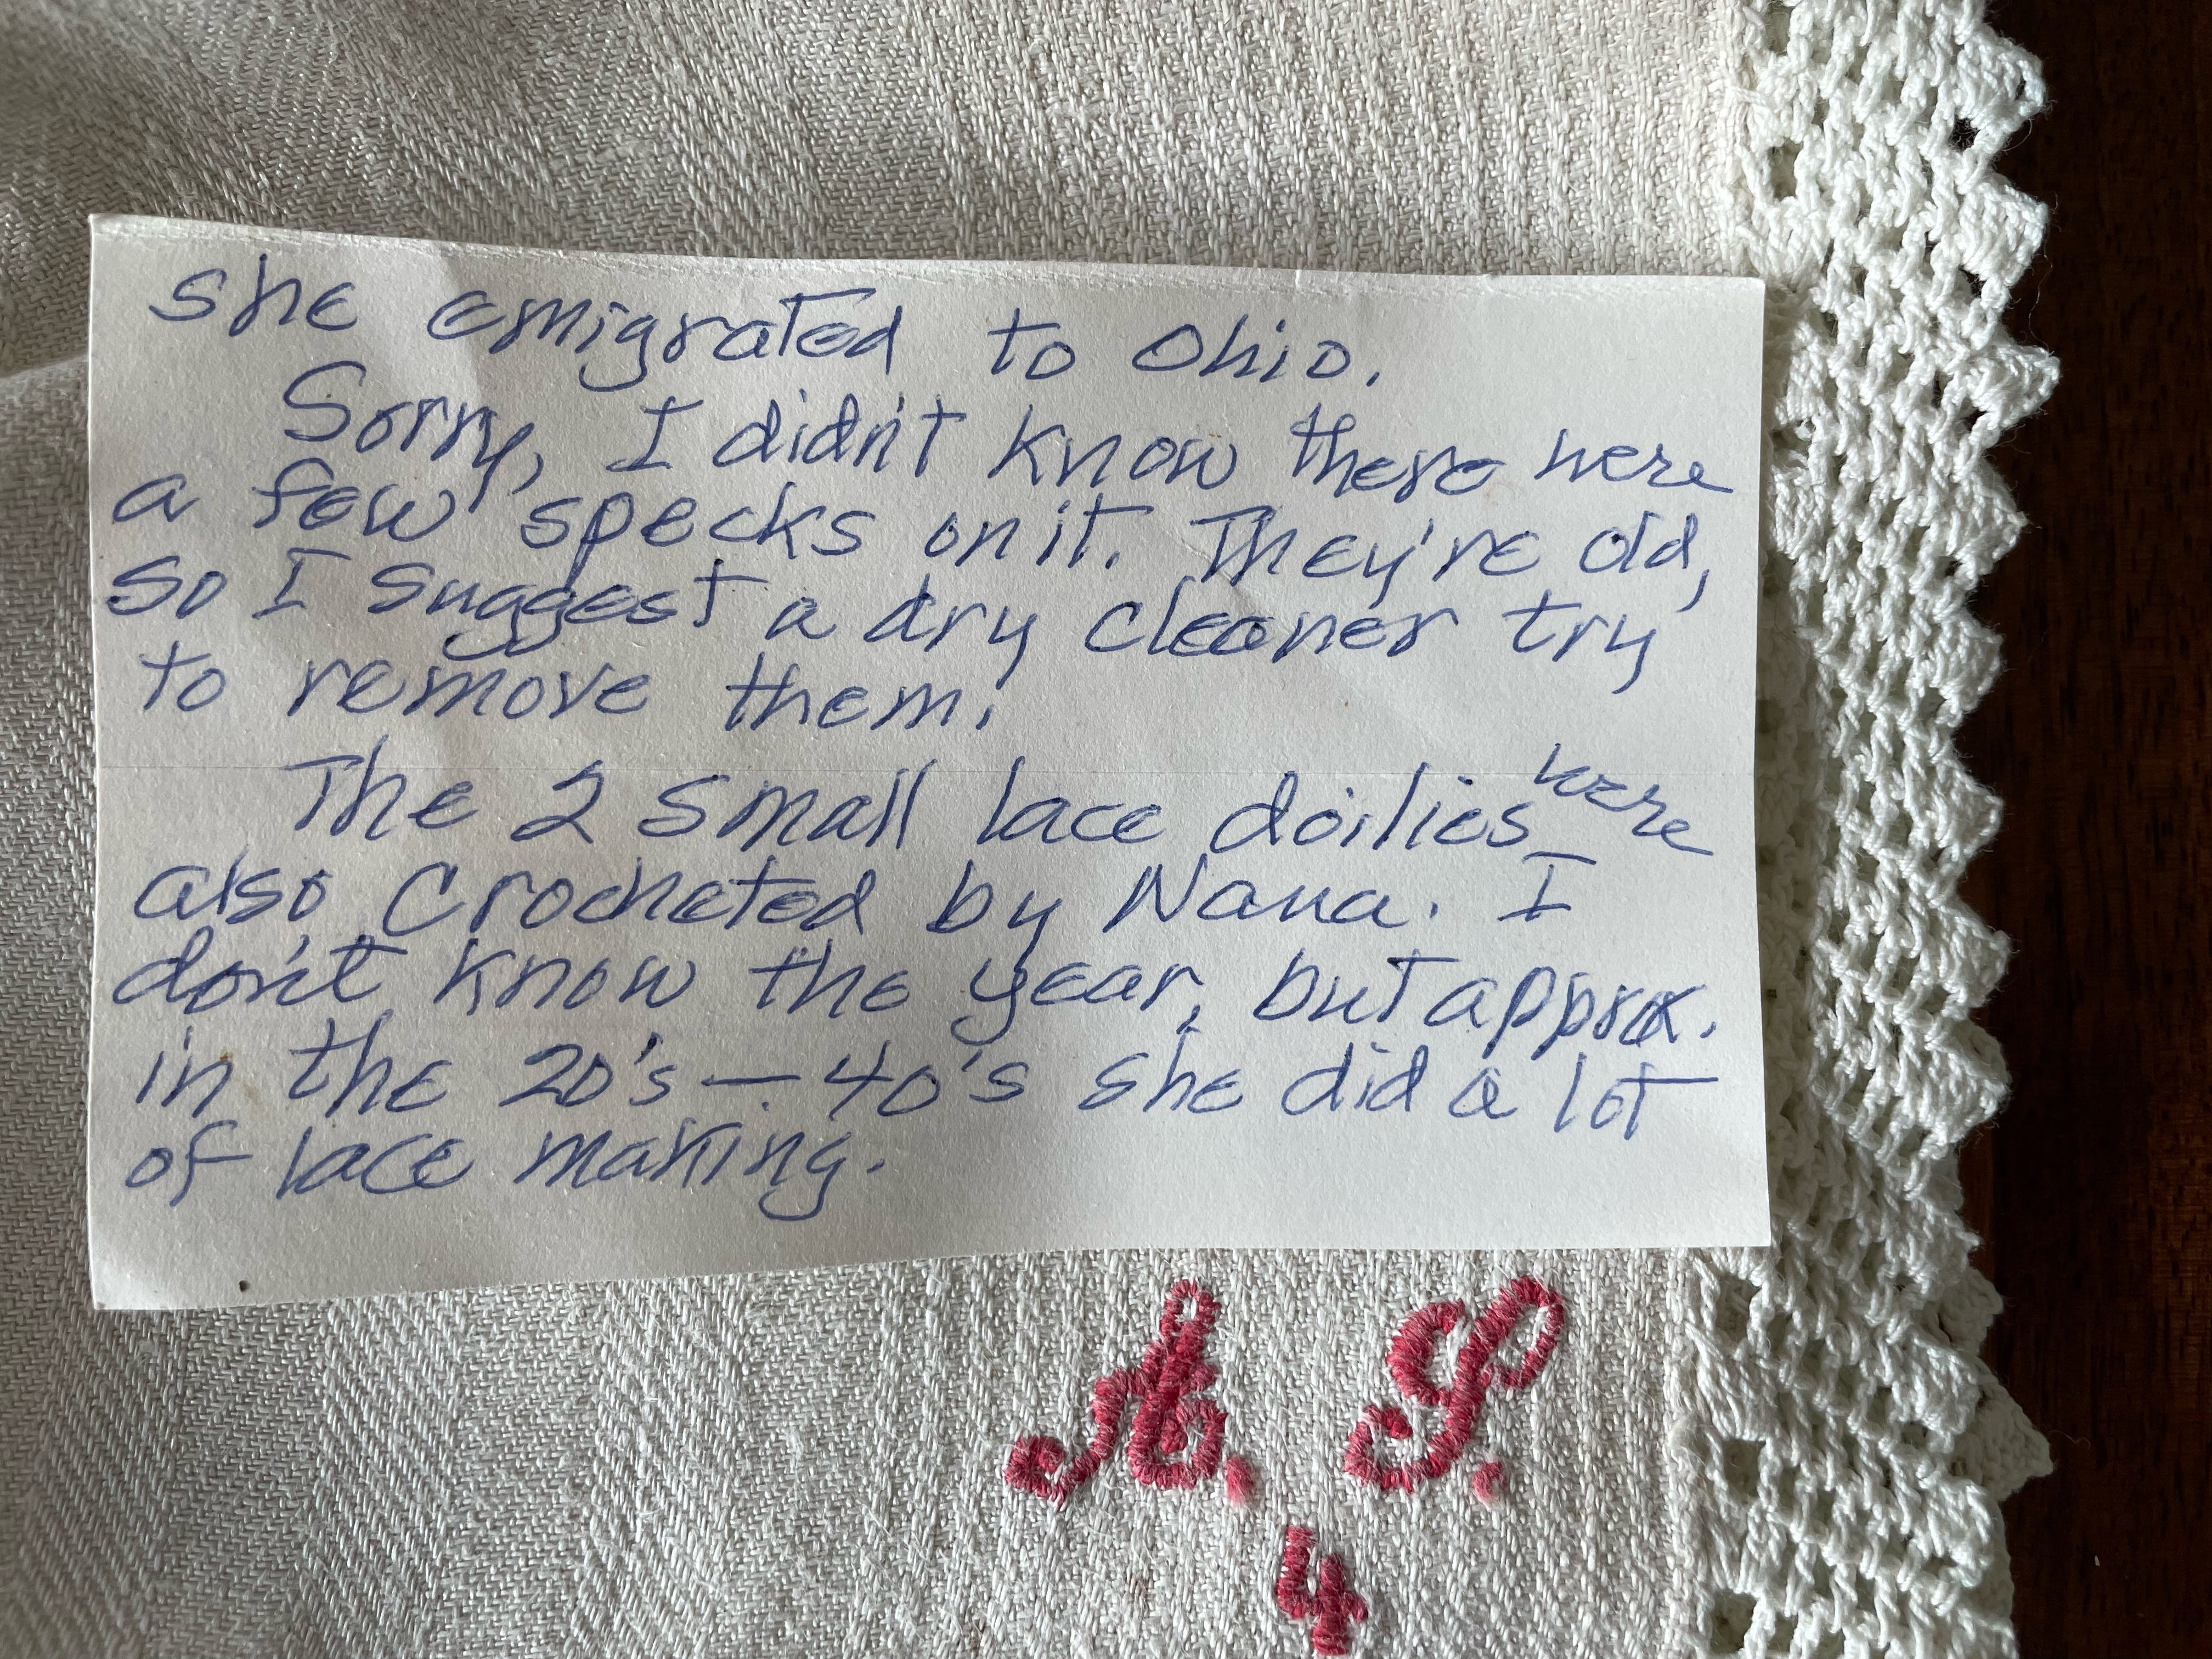 she emigrated to Ohio.
Sorry, I didn't know there were
a few specks on it. They're old,
so I suggest a dry cleaner try
to remove them.
The 2 small lace doilies were
also crocheted by Nana. I
don't know the year, but approx.
in the 20's — 40's she did a lot
of lace making.
A. S.
4